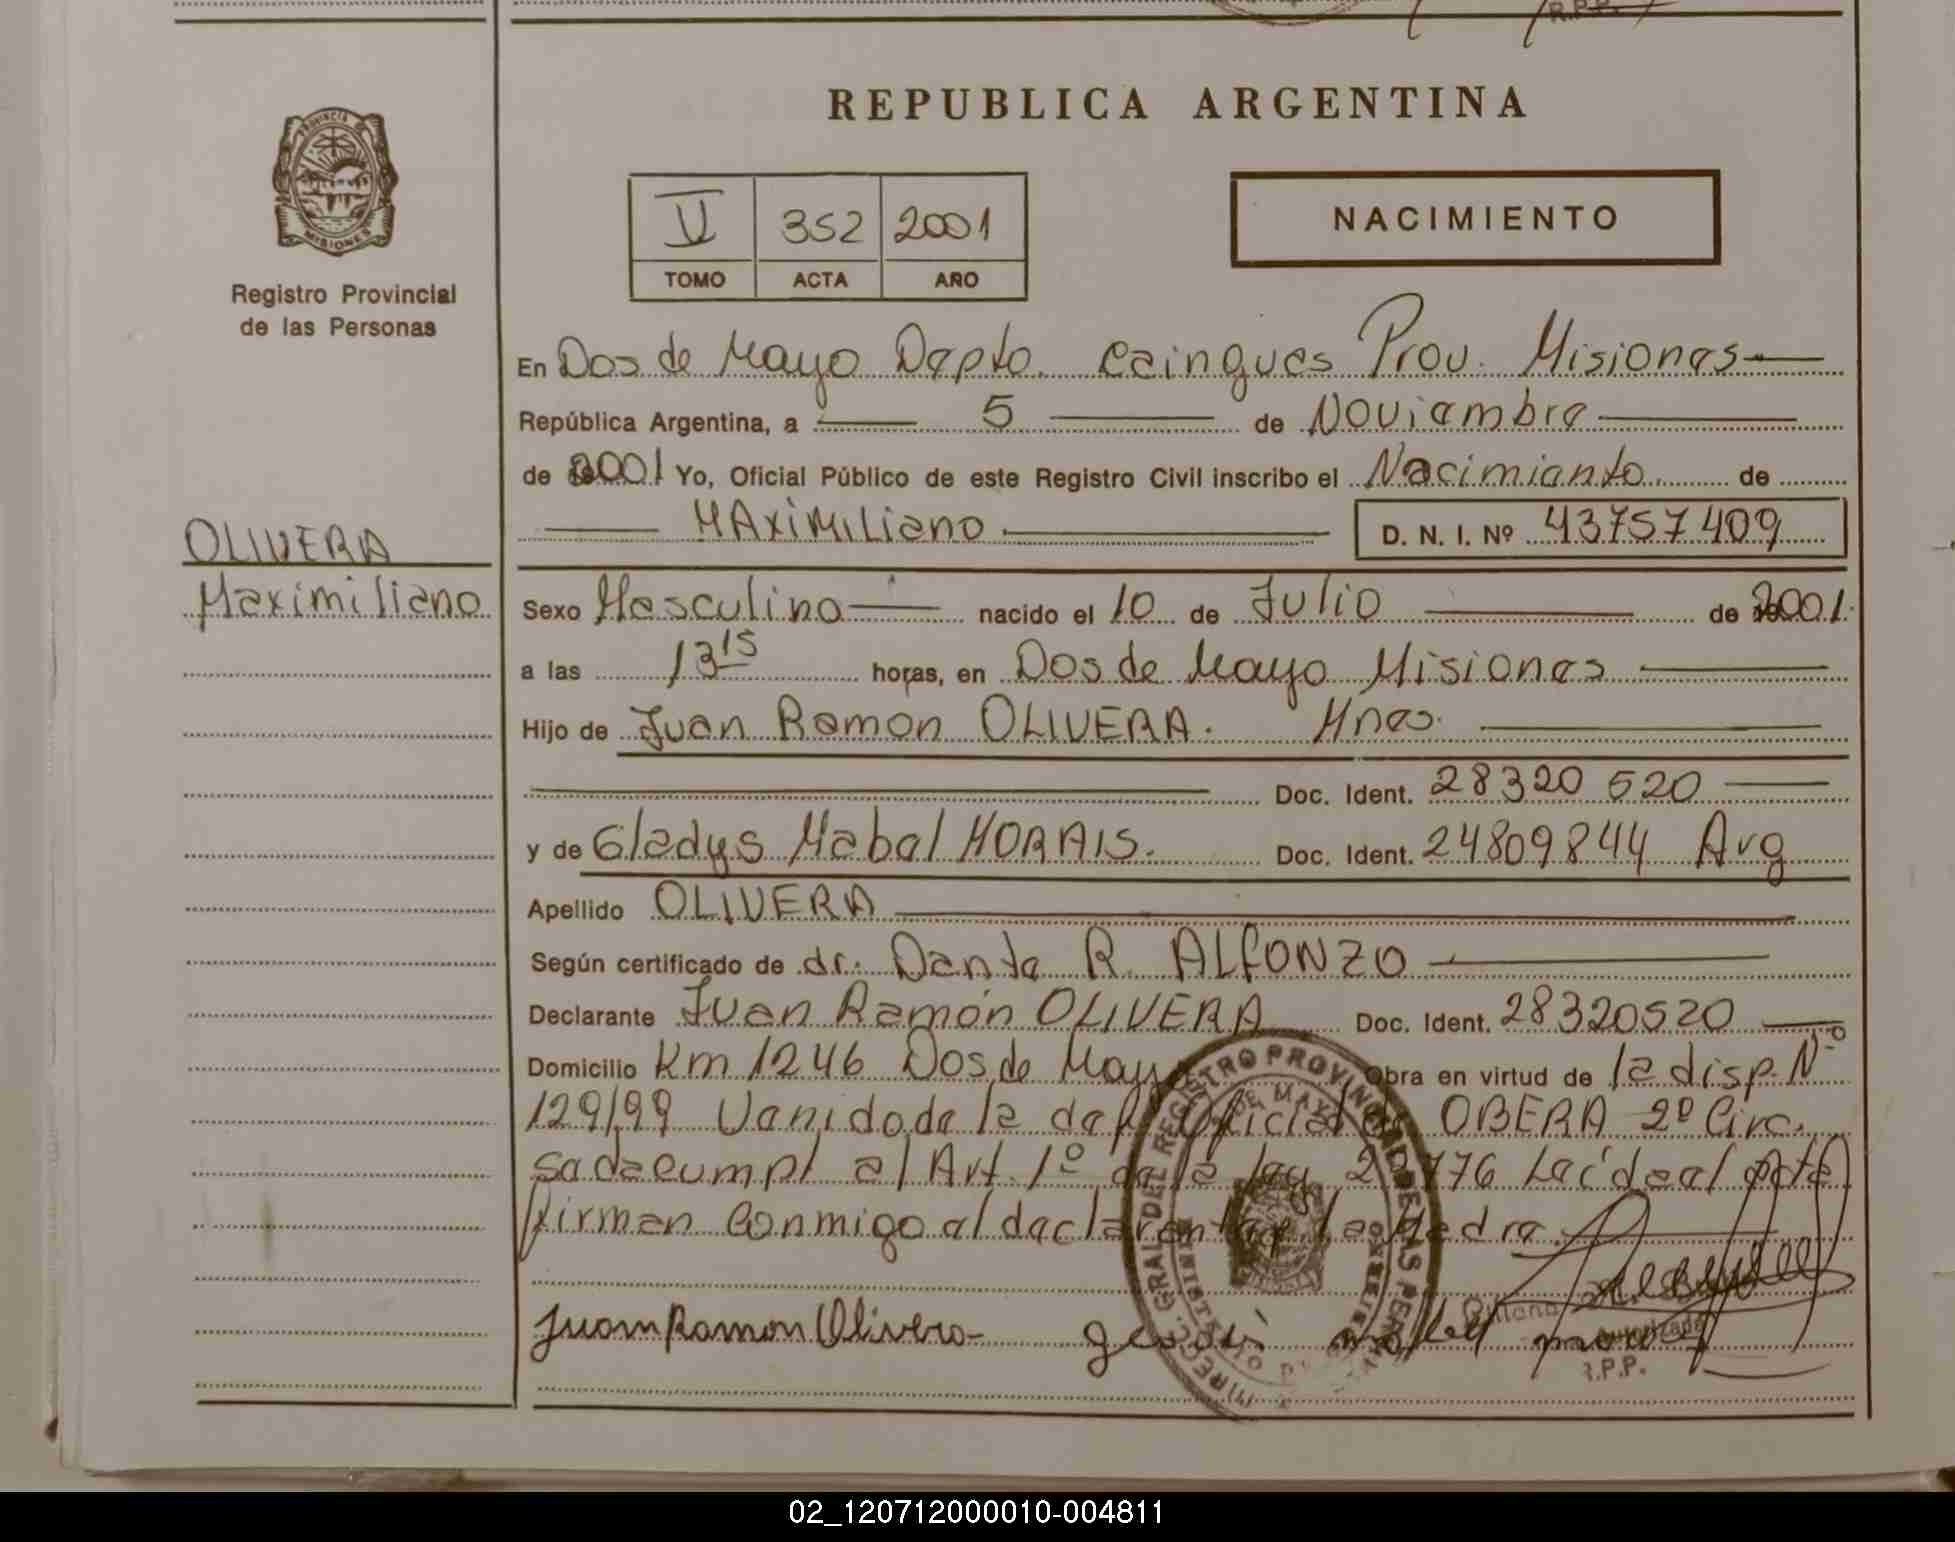 R.P.P.
REPUBLICA ARGENTINA
PROVINCIA DE
MISIONES
V 352 2001
TOMO ACTA AÑO
NACIMIENTO
Registro Provincial
de las Personas
En Dos de Mayo Depto. Cainguas Prov. Misiones
República Argentina, a 5 de Noviembre
de 2001 Yo, Oficial Público de este Registro Civil inscribo el Nacimiento de
MAXiMiLiano D. N. I. Nº 43757409
OLIVERA
Maximiliano
Sexo Masculino nacido el 10 de Julio de 2001.
a las 13 15 horas, en Dos de Mayo Misiones
Hijo de Juan Ramon OLIVERA. Mnes.
Doc. Ident. 28320 520
y de Gladys Mabel MORAIS. Doc. Ident. 24809844 Arg
Apellido OLIVERA
Según certificado de dr. Dante R. ALFONZO
Declarante Juan Ramón OLIVERA Doc. Ident. 28320520
Domicilio Km 1246 Dos de Mayo Obra en virtud de la disp. Nº
129/99 Venido de la del. Oficial de OBERA 2º Circ.
se da cumpl al Art. 1º de la ley 2 776 Leída el acta
firman conmigo el declarante y la Madre.
Juan Ramon Olivera
Autorizada
R.P.P.
DIREC. GRAL DEL REGISTRO PROVINCIAL DE LAS PERSONAS
DE MAYO
MINISTERIO DE GOBIERNO
02_120712000010-004811